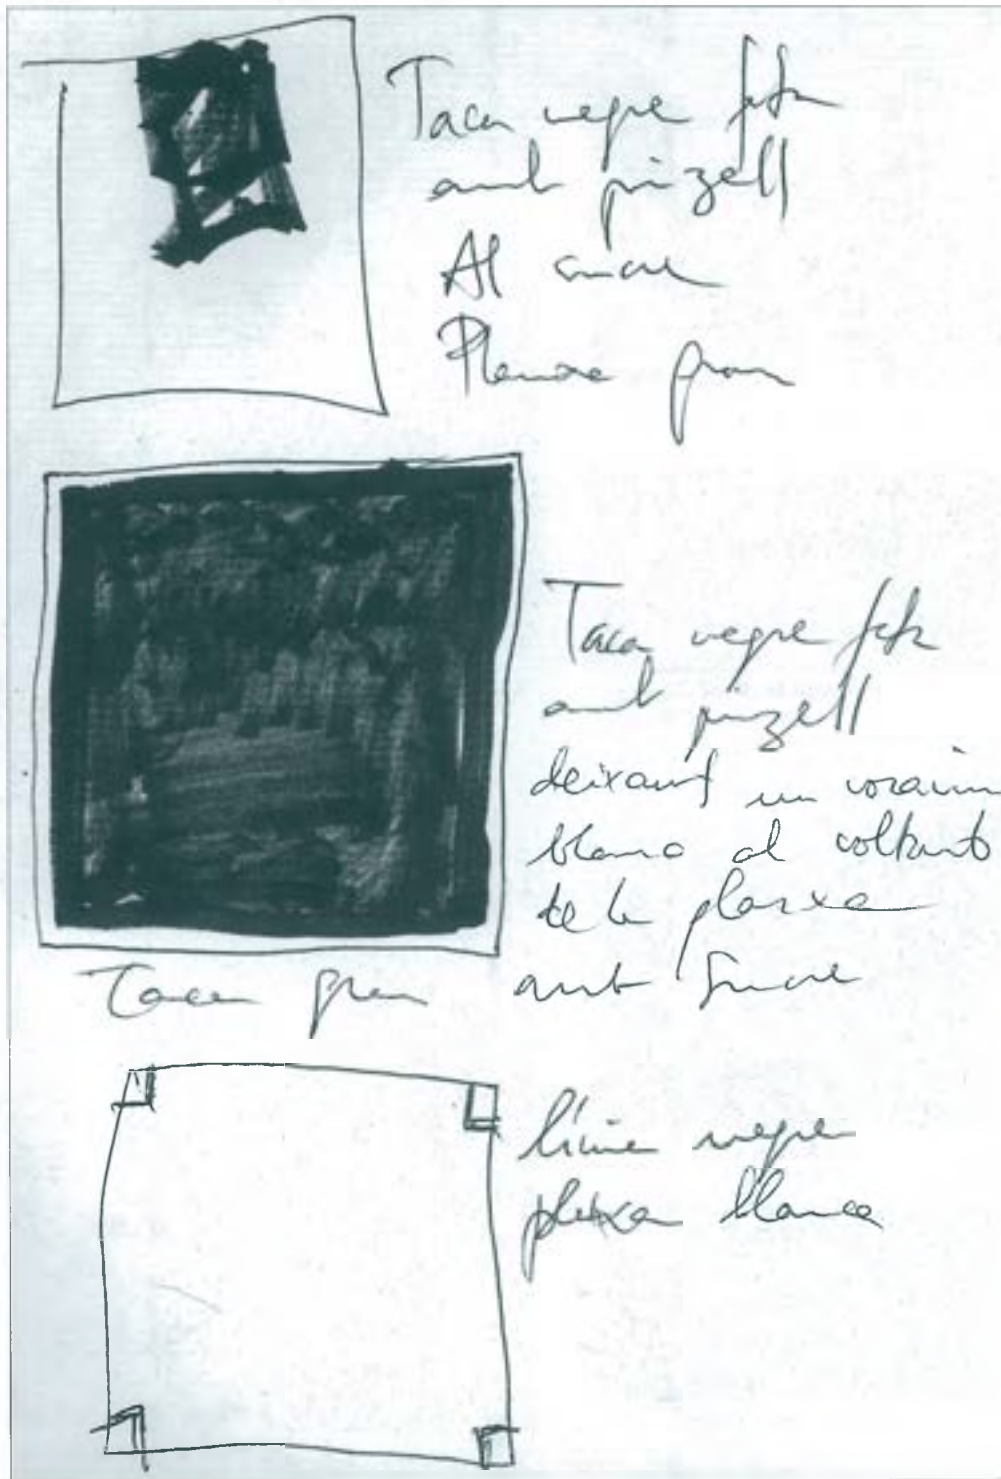 Taca negre feta
amb pinzell
Al sucre
Planxa gran
Taca negre feta
amb pinzell
deixant un voraviu
blanc al voltant
de la planxa
Taca gran amb Sucre
línia negre
planxa blanca